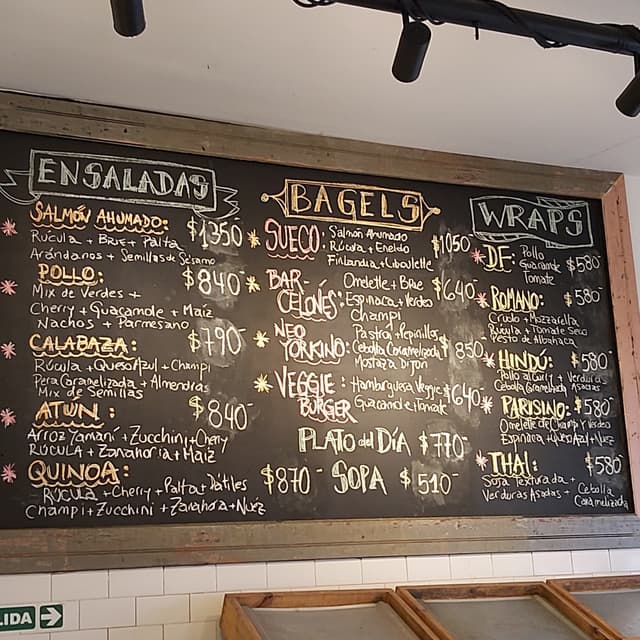 ENSALADAS
SALMÓN AHUMADO: $1350-
Rúcula + Brie + Palta
Arándanos + Semillas de Sésamo
POLLO: $840-
Mix de Verdes +
Cherry + Guacamole + Maíz
Nachos + Parmesano
CALABAZA: $790-
Rúcula + Queso Azul + Champi
Pera Caramelizada + Almendras
Mix de Semillas
ATÚN: $840-
Arroz Yamaní + Zucchini + Cherry
RÚCULA + Zanahoria + Maíz
QUINOA: $870-
RÚCULA + Cherry + Palta + Dátiles
Champi + Zucchini + Zanahoria + Nuéz
BAGELS
SUECO: Salmón Ahumado $1050-
Rúcula + Eneldo
Finlandia + Ciboulette
BAR- Omelette + Brie $640-
CELONÉS: Espinaca + Verdes
champi
NEO Pastrón + Pepinillos
YORKINO: Cebolla Caramelizada $850-
Mostaza Dijon
VEGGIE Hamburguesa Veggie $640-
BURGER Guacamole + Tomate
PLATO del DÍA $770-
SOPA $510-
WRAPS
DF: Pollo $580-
Guacamole
Tomate
ROMANO: $580-
Crudo + Mozzarella
Rúcula + Tomate Seco
Pesto de Albahaca
HINDÚ: $580-
Pollo al Curry + Verduras
Cebolla Caramelizada Asadas
PARISINO: $580-
Omelette de Champ y Verdes
Espinaca + Queso Azul + Nuez
THAI: $580-
Soja Texturada +
Verduras Asadas + Cebolla
Caramelizada
LIDA